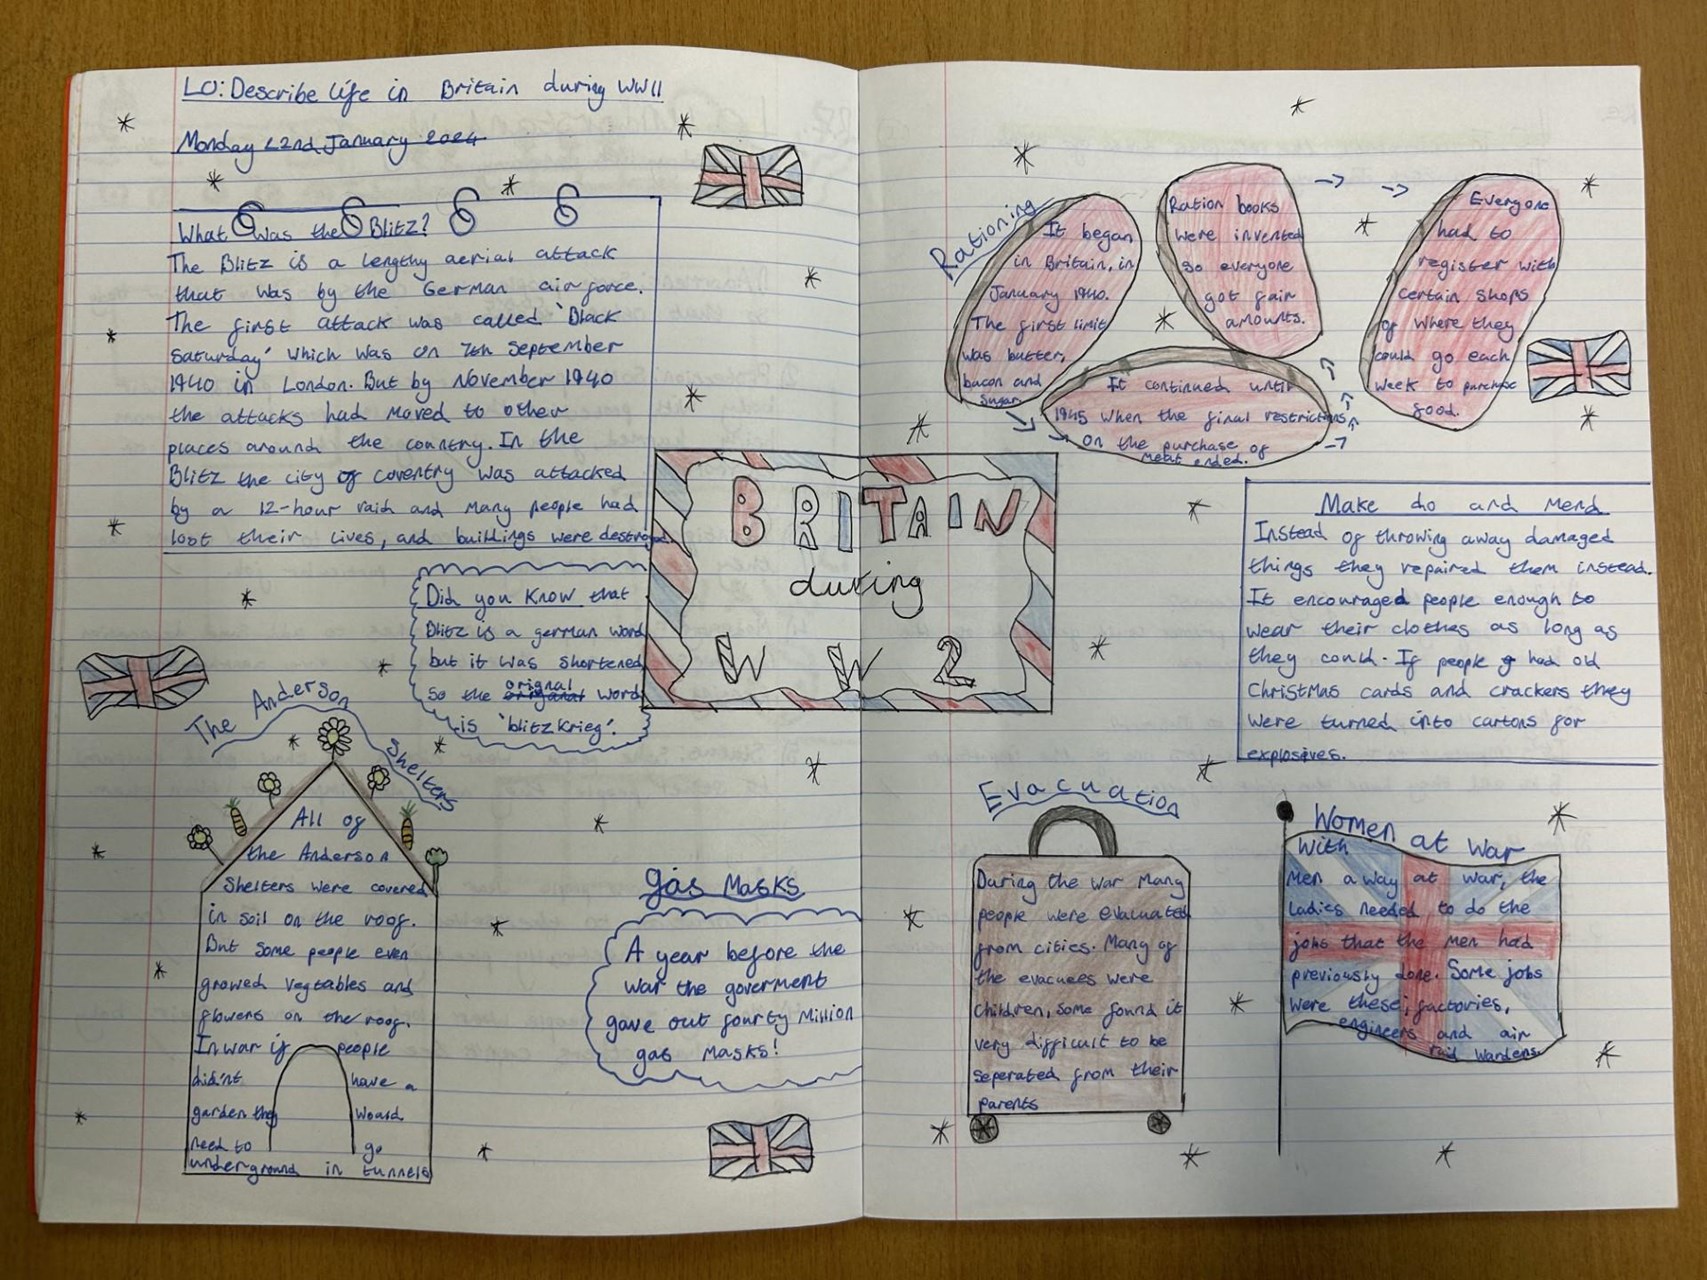 LO: Describe life in Britain during WWII
Monday 22nd January 2024
What was the Blitz?
The Blitz is a lengthy aerial attack
that was by the German air force.
The first attack was called 'Black
Saturday' which was on 7th September
1940 in London. But by November 1940
the attacks had moved to other
places around the country. In the
Blitz the city of coventry was attacked
by a 12-hour raid and many people had
lost their lives, and buildings were destroyed.
Did you know that
Blitz is a german word
but it was shortened
so the orignal word
is 'blitzkrieg'.
The Anderson Shelters
All of
the Anderson
Shelters were covered
in soil on the roof.
But some people even
growed vegtables and
flowers on the roof.
In war if people
didn't have a
garden they woauld
need to go
underground in tunnels
gas Masks
A year before the
war the goverment
gave out fourty Million
gas masks!
BRITAIN
during
WW2
Rationing
It began
in Britain, in
January 1940.
The first limit
was butter,
bacon and
sugar
It continued until
1945 when the final restrictions
on the purchase of
meat ended.
Ration books
were invented
so everyone
got fair
amounts.
Everyone
had to
register with
certain shops
of where they
could go each
week to purchase
food.
Make do and Mend
Instead of throwing away damaged
things they repaired them instead.
It encouraged people enough to
wear their clothes as long as
they could. If people had old
Christmas cards and crackers they
were turned into cartons for
explosives.
Evacuation
During the war many
people were evacuated
from cities. Many of
the evacuees were
children, some found it
very difficult to be
seperated from their
parents
Women at War
With
Men away at war, the
ladies needed to do the
jobs that the men had
previously done. Some jobs
were these; factories,
engineers and air
raid wardens.